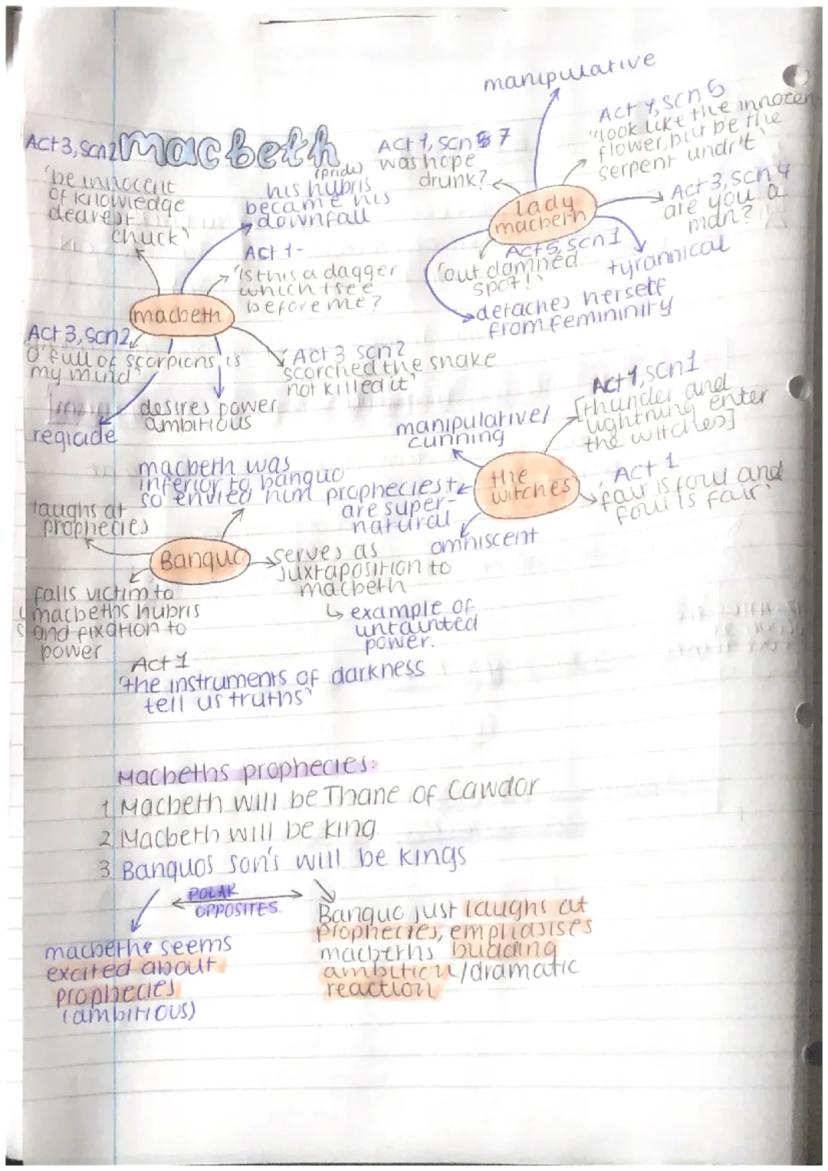 macbeth
Act 3, scn2
'be innocent
of knowledge
dearest
chuck'
(pride)
his hubris
became his
downfall
Act 1-
'is this a dagger
which I see
before me?
macbeth
Act 3, scn2
O'full of scorpions is
my mind'
regicide
desires power
ambitious
Act 3 scn2
scorched the snake
not killed it'
manipulative
Act 1, scn 7
was hope
drunk?
Act 1, scn 5
'look like the innocen
flower, but be the
serpent undr't'
lady
macbeth
Act 3, scn 4
are you a
man?
Act 5, scn1
'out damned
spot!'
tyrannical
detaches herself
from femininity
manipulative/
cunning
Act 1, scn1
[thunder and
lightning enter
the witches]
the
witches
Act 1
'fair is foul and
foul is fair'
prophecies
are super-
natural
omniscent
macbeth was
inferior to banquo
so envied him
laughs at
prophecies
Banquo
serves as
juxtaposition to
macbeth
↳ example of
untainted
power.
falls victim to
macbeths hubris
and fixation to
power
Act 1
'the instruments of darkness
tell us truths'
Macbeths prophecies:
1 Macbeth will be Thane of Cawdor
2 Macbeth will be king
3 Banquos son's will be kings
POLAR
OPPOSITES.
macbeth seems
excited about
prophecies
(ambitious)
Banquo just laughs at
prophecies, emphasises
macbeths budding
ambition/dramatic
reaction